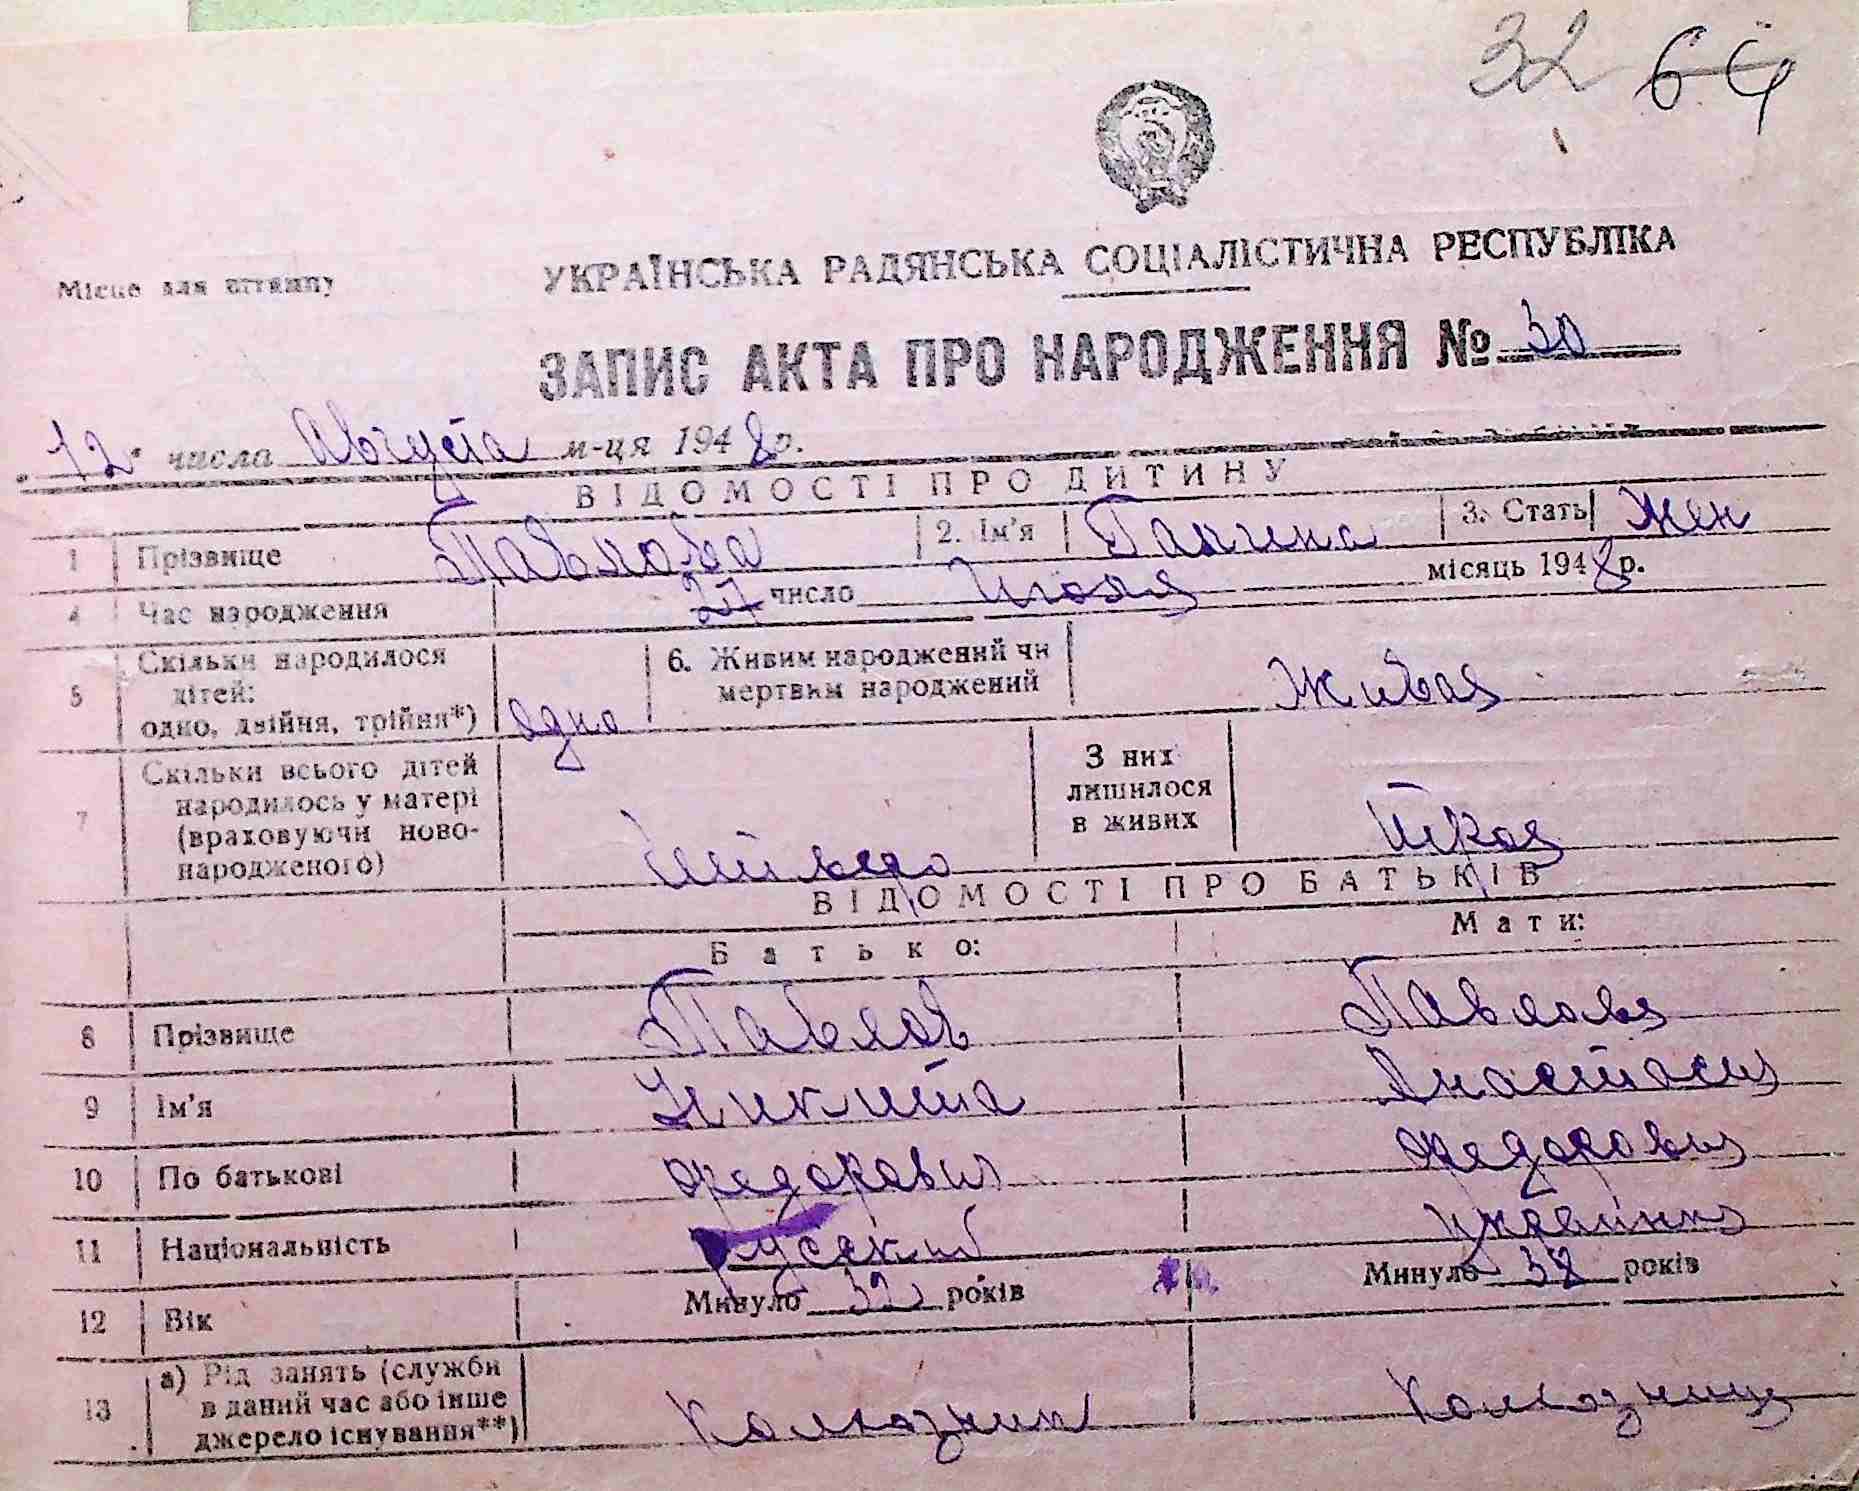 32 64
Місце для штампу
УКРАЇНСЬКА РАДЯНСЬКА СОЦІАЛІСТИЧНА РЕСПУБЛІКА
ЗАПИС АКТА ПРО НАРОДЖЕННЯ № 30
"12" числа Августа м-ця 1948 р.
ВІДОМОСТІ ПРО ДИТИНУ
1 Прізвище Павлова 2. Ім'я Галина 3. Стать Жен
4 Час народження 27 число Июля місяць 1948 р.
5 Скільки народилося дітей: одно, двійня, трійня*) одно 6. Живим народжений чи мертвим народжений Живая
7 Скільки всього дітей народилось у матері (враховуючи новонародженого) З них лишилося в живих Трое
ВІДОМОСТІ ПРО БАТЬКІВ
Батько: Мати:
8 Прізвище Павлов Павлова
9 Ім'я Никита Анастасия
10 По батькові Федорович Федоровна
11 Національність русский украинка
12 Вік Минуло 32 років Минуло 38 років
13 а) Рід занять (служби в даний час або інше джерело існування**) Колхозник Колхозница